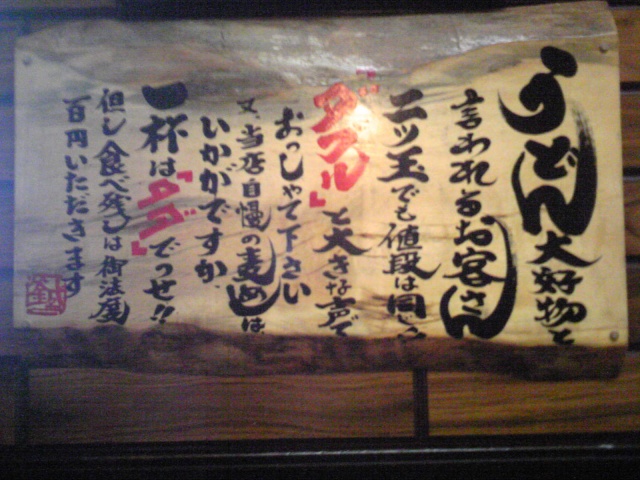 うどん大好物と
言われるお客さん
二ツ玉でも値段は同じ
『ダブル』と大きな声で
おっしゃて下さい
又、当店自慢の麦めしは
いかがですか、
一杯は『タダ』でっせ!!
但し食べ残しは御法度
百円いただきます